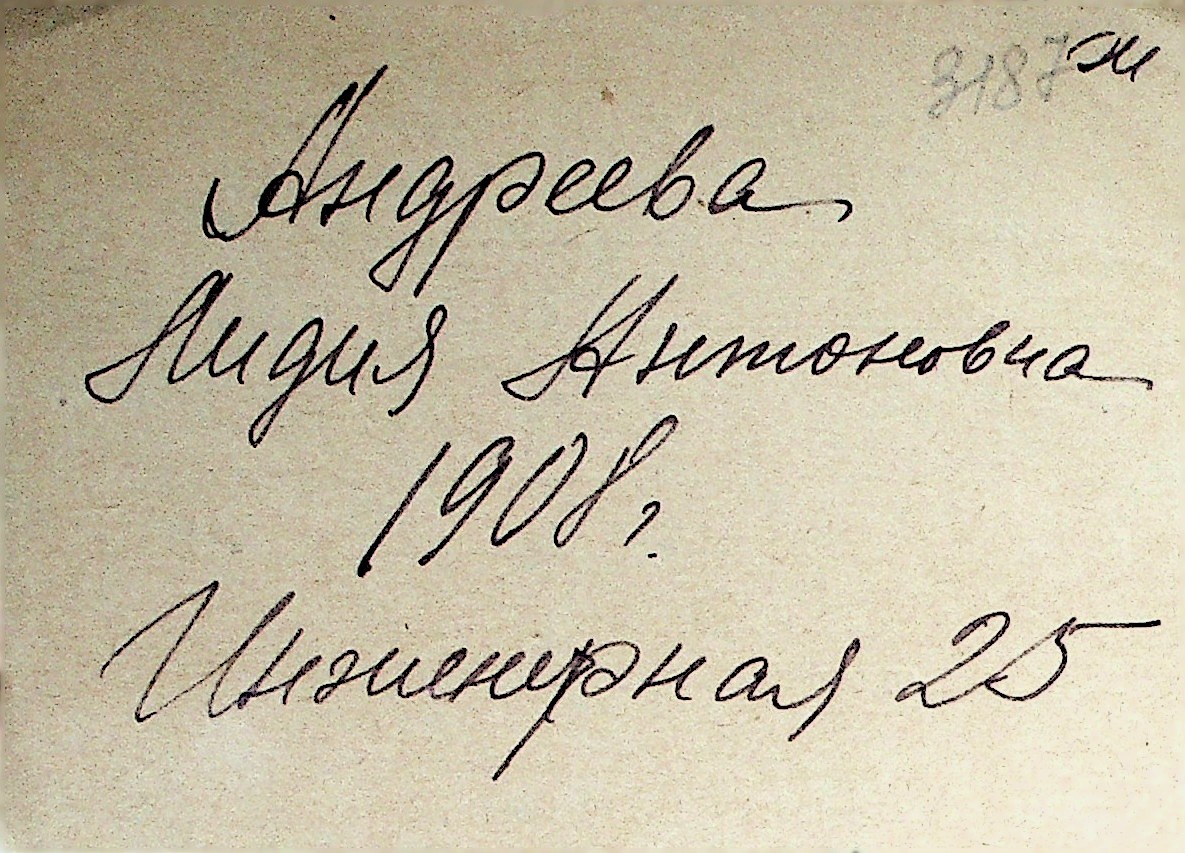 3187 ж
Андреева
Лидия Антоновна
1908 г.
Инженерная 25